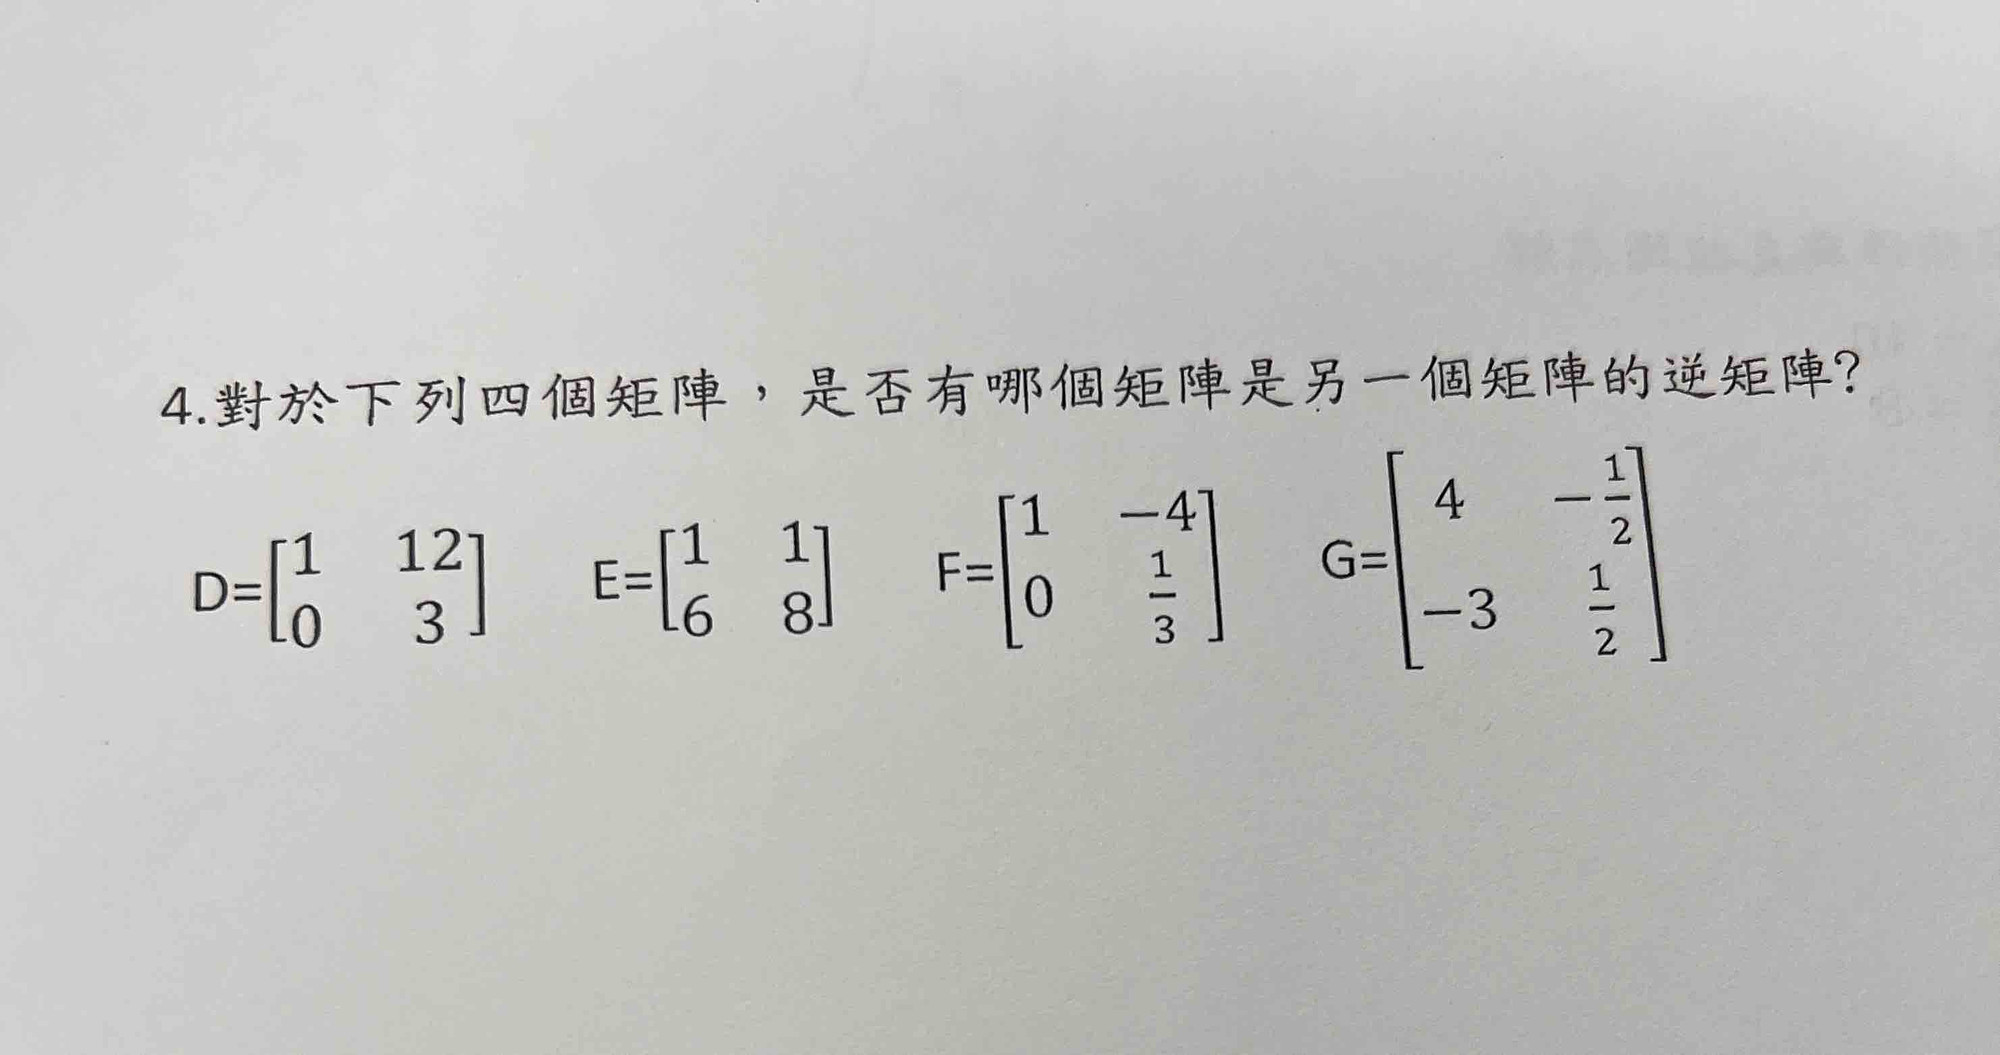 4.對於下列四個矩陣，是否有哪個矩陣是另一個矩陣的逆矩陣?
D=[1 12; 0 3] E=[1 1; 6 8] F=[1 −4; 0 1/3] G=[4 −1/2; −3 1/2]